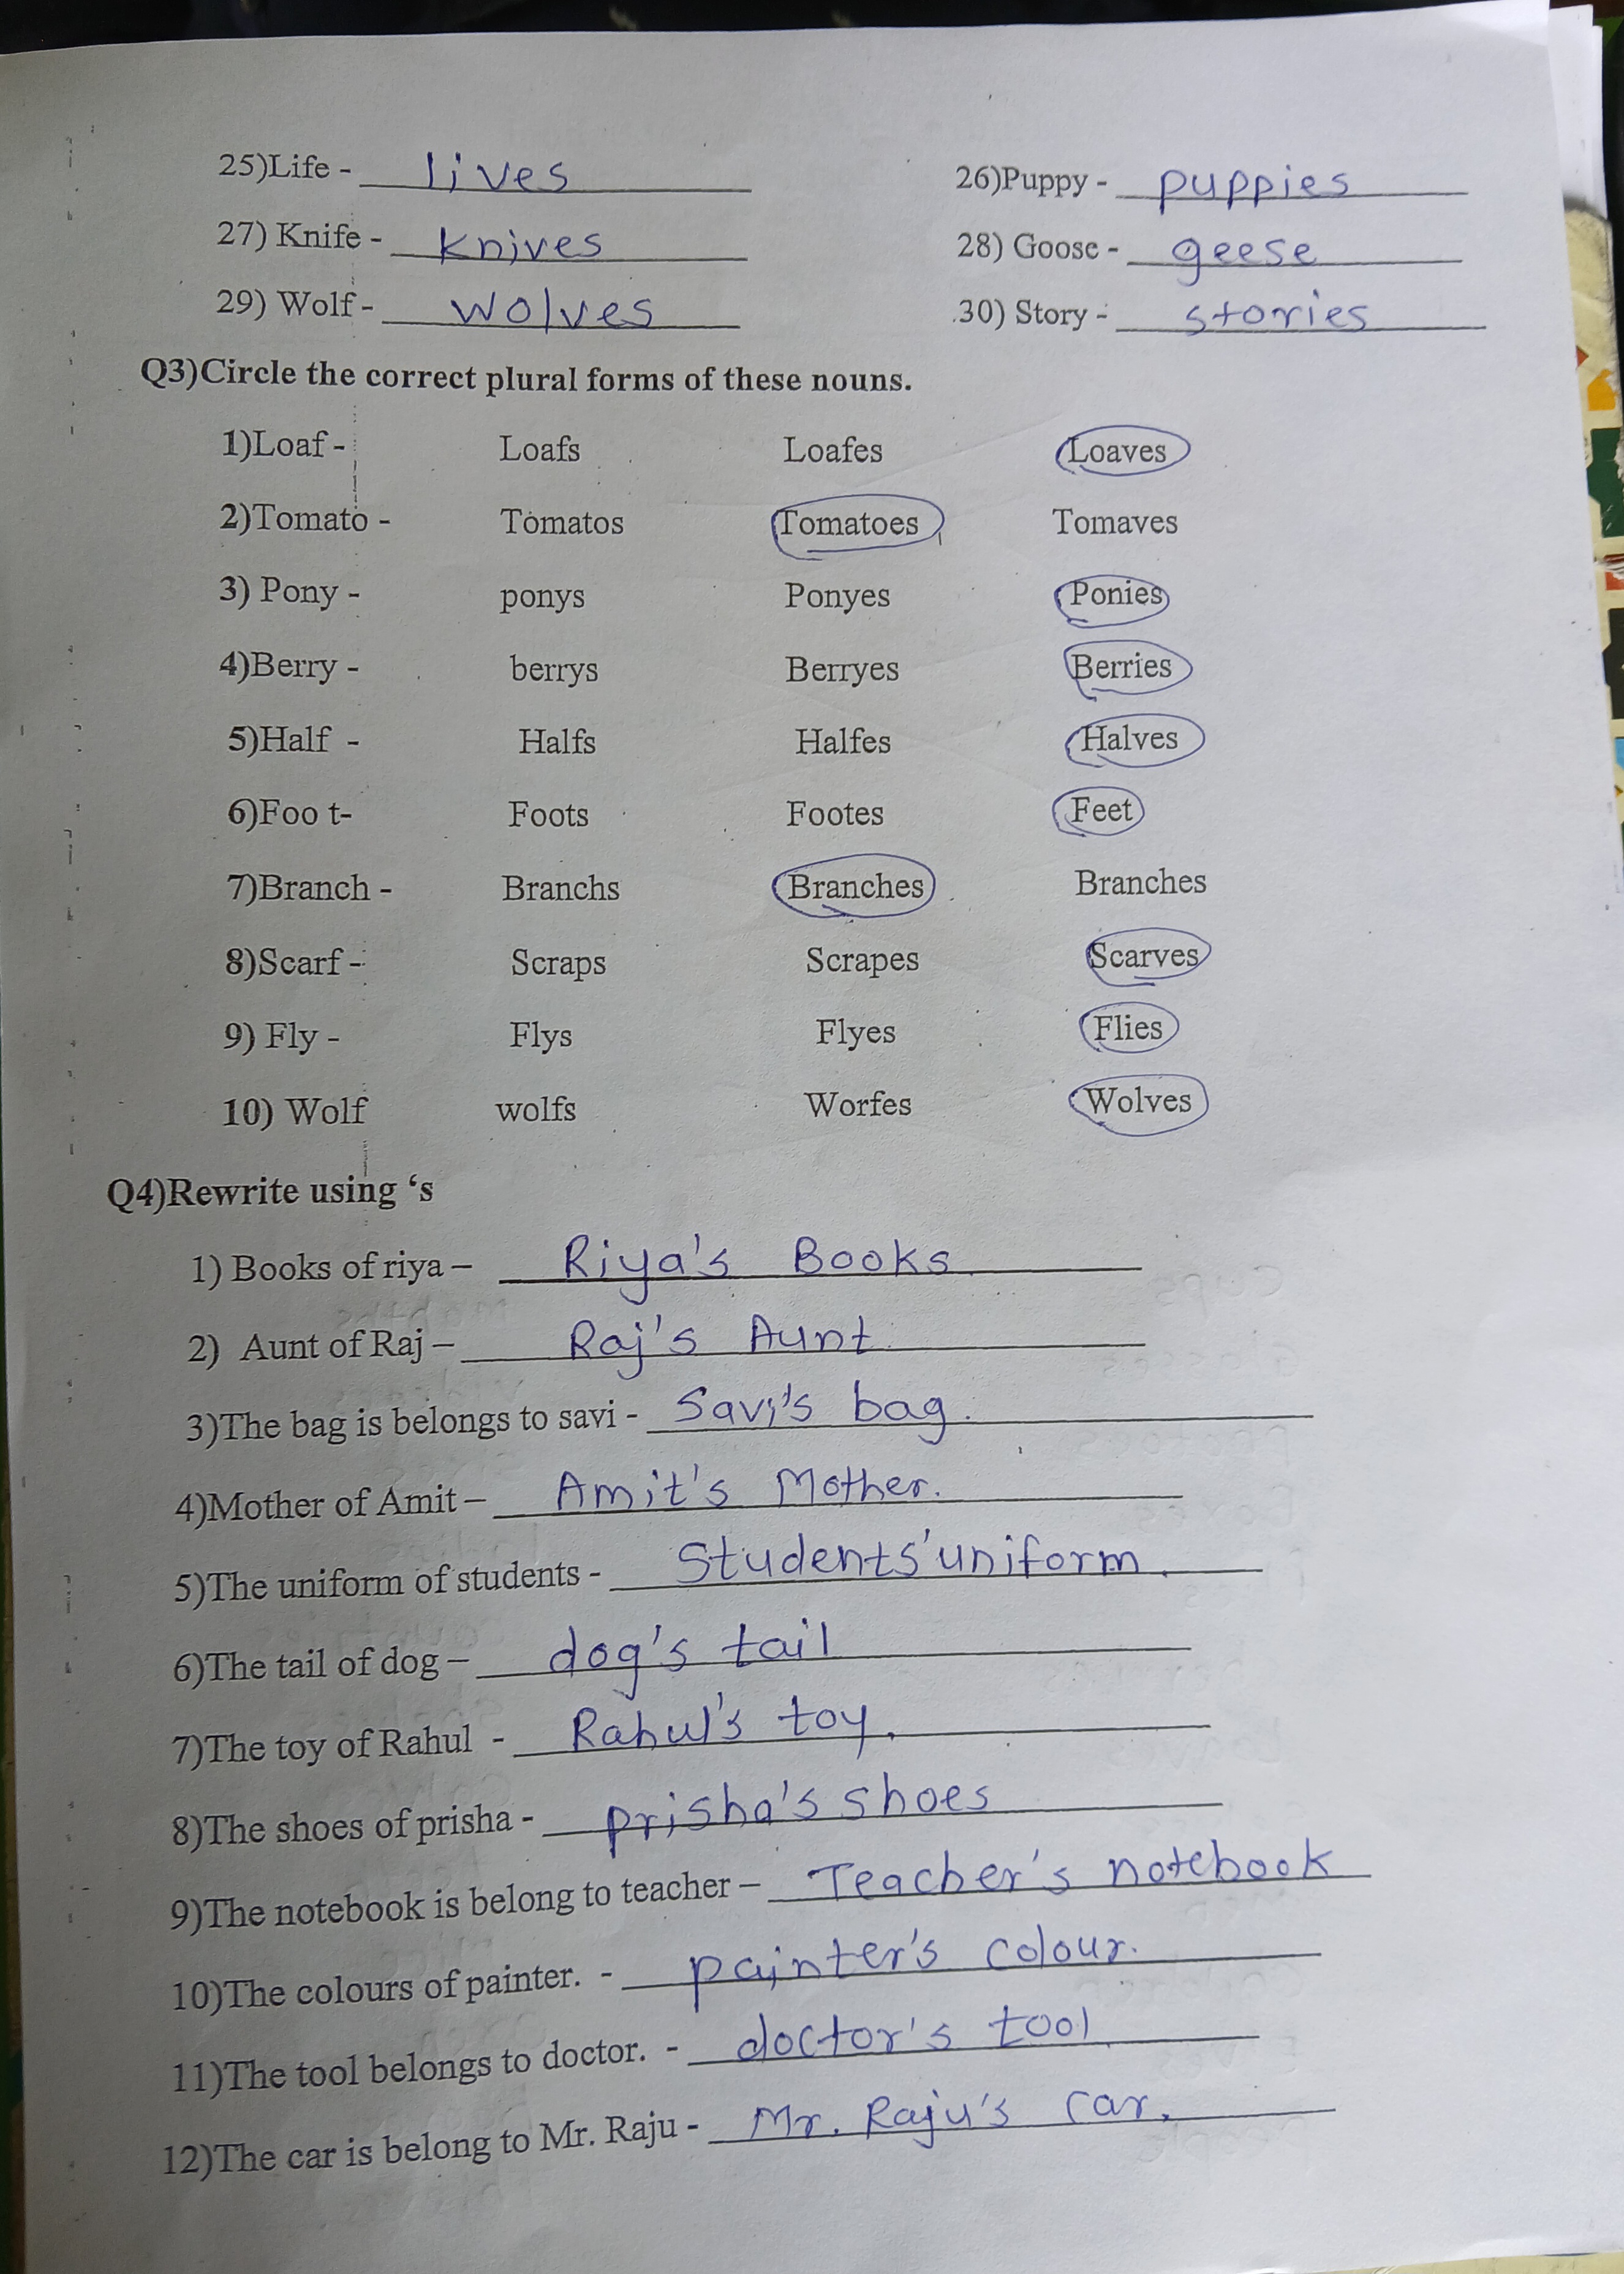 25)Life - lives 26)Puppy - puppies
27) Knife - knives 28) Goose - geese
29) Wolf - wolves 30) Story - stories
Q3)Circle the correct plural forms of these nouns.
1)Loaf - Loafs Loafes Loaves
2)Tomato - Tomatos Tomatoes Tomaves
3) Pony - ponys Ponyes Ponies
4)Berry - berrys Berryes Berries
5)Half - Halfs Halfes Halves
6)Foo t- Foots Footes Feet
7)Branch - Branchs Branches Branches
8)Scarf - Scraps Scrapes Scarves
9) Fly - Flys Flyes Flies
10) Wolf wolfs Worfes Wolves
Q4)Rewrite using ‘s
1) Books of riya – Riya's Books
2) Aunt of Raj – Raj's Aunt.
3)The bag is belongs to savi - Savi's bag.
4)Mother of Amit – Amit's Mother.
5)The uniform of students - Students' uniform.
6)The tail of dog – dog's tail
7)The toy of Rahul - Rahul's toy.
8)The shoes of prisha - prisha's shoes
9)The notebook is belong to teacher – Teacher's notebook
10)The colours of painter. - painter's colour.
11)The tool belongs to doctor. - doctor's tool
12)The car is belong to Mr. Raju - Mr. Raju's car.